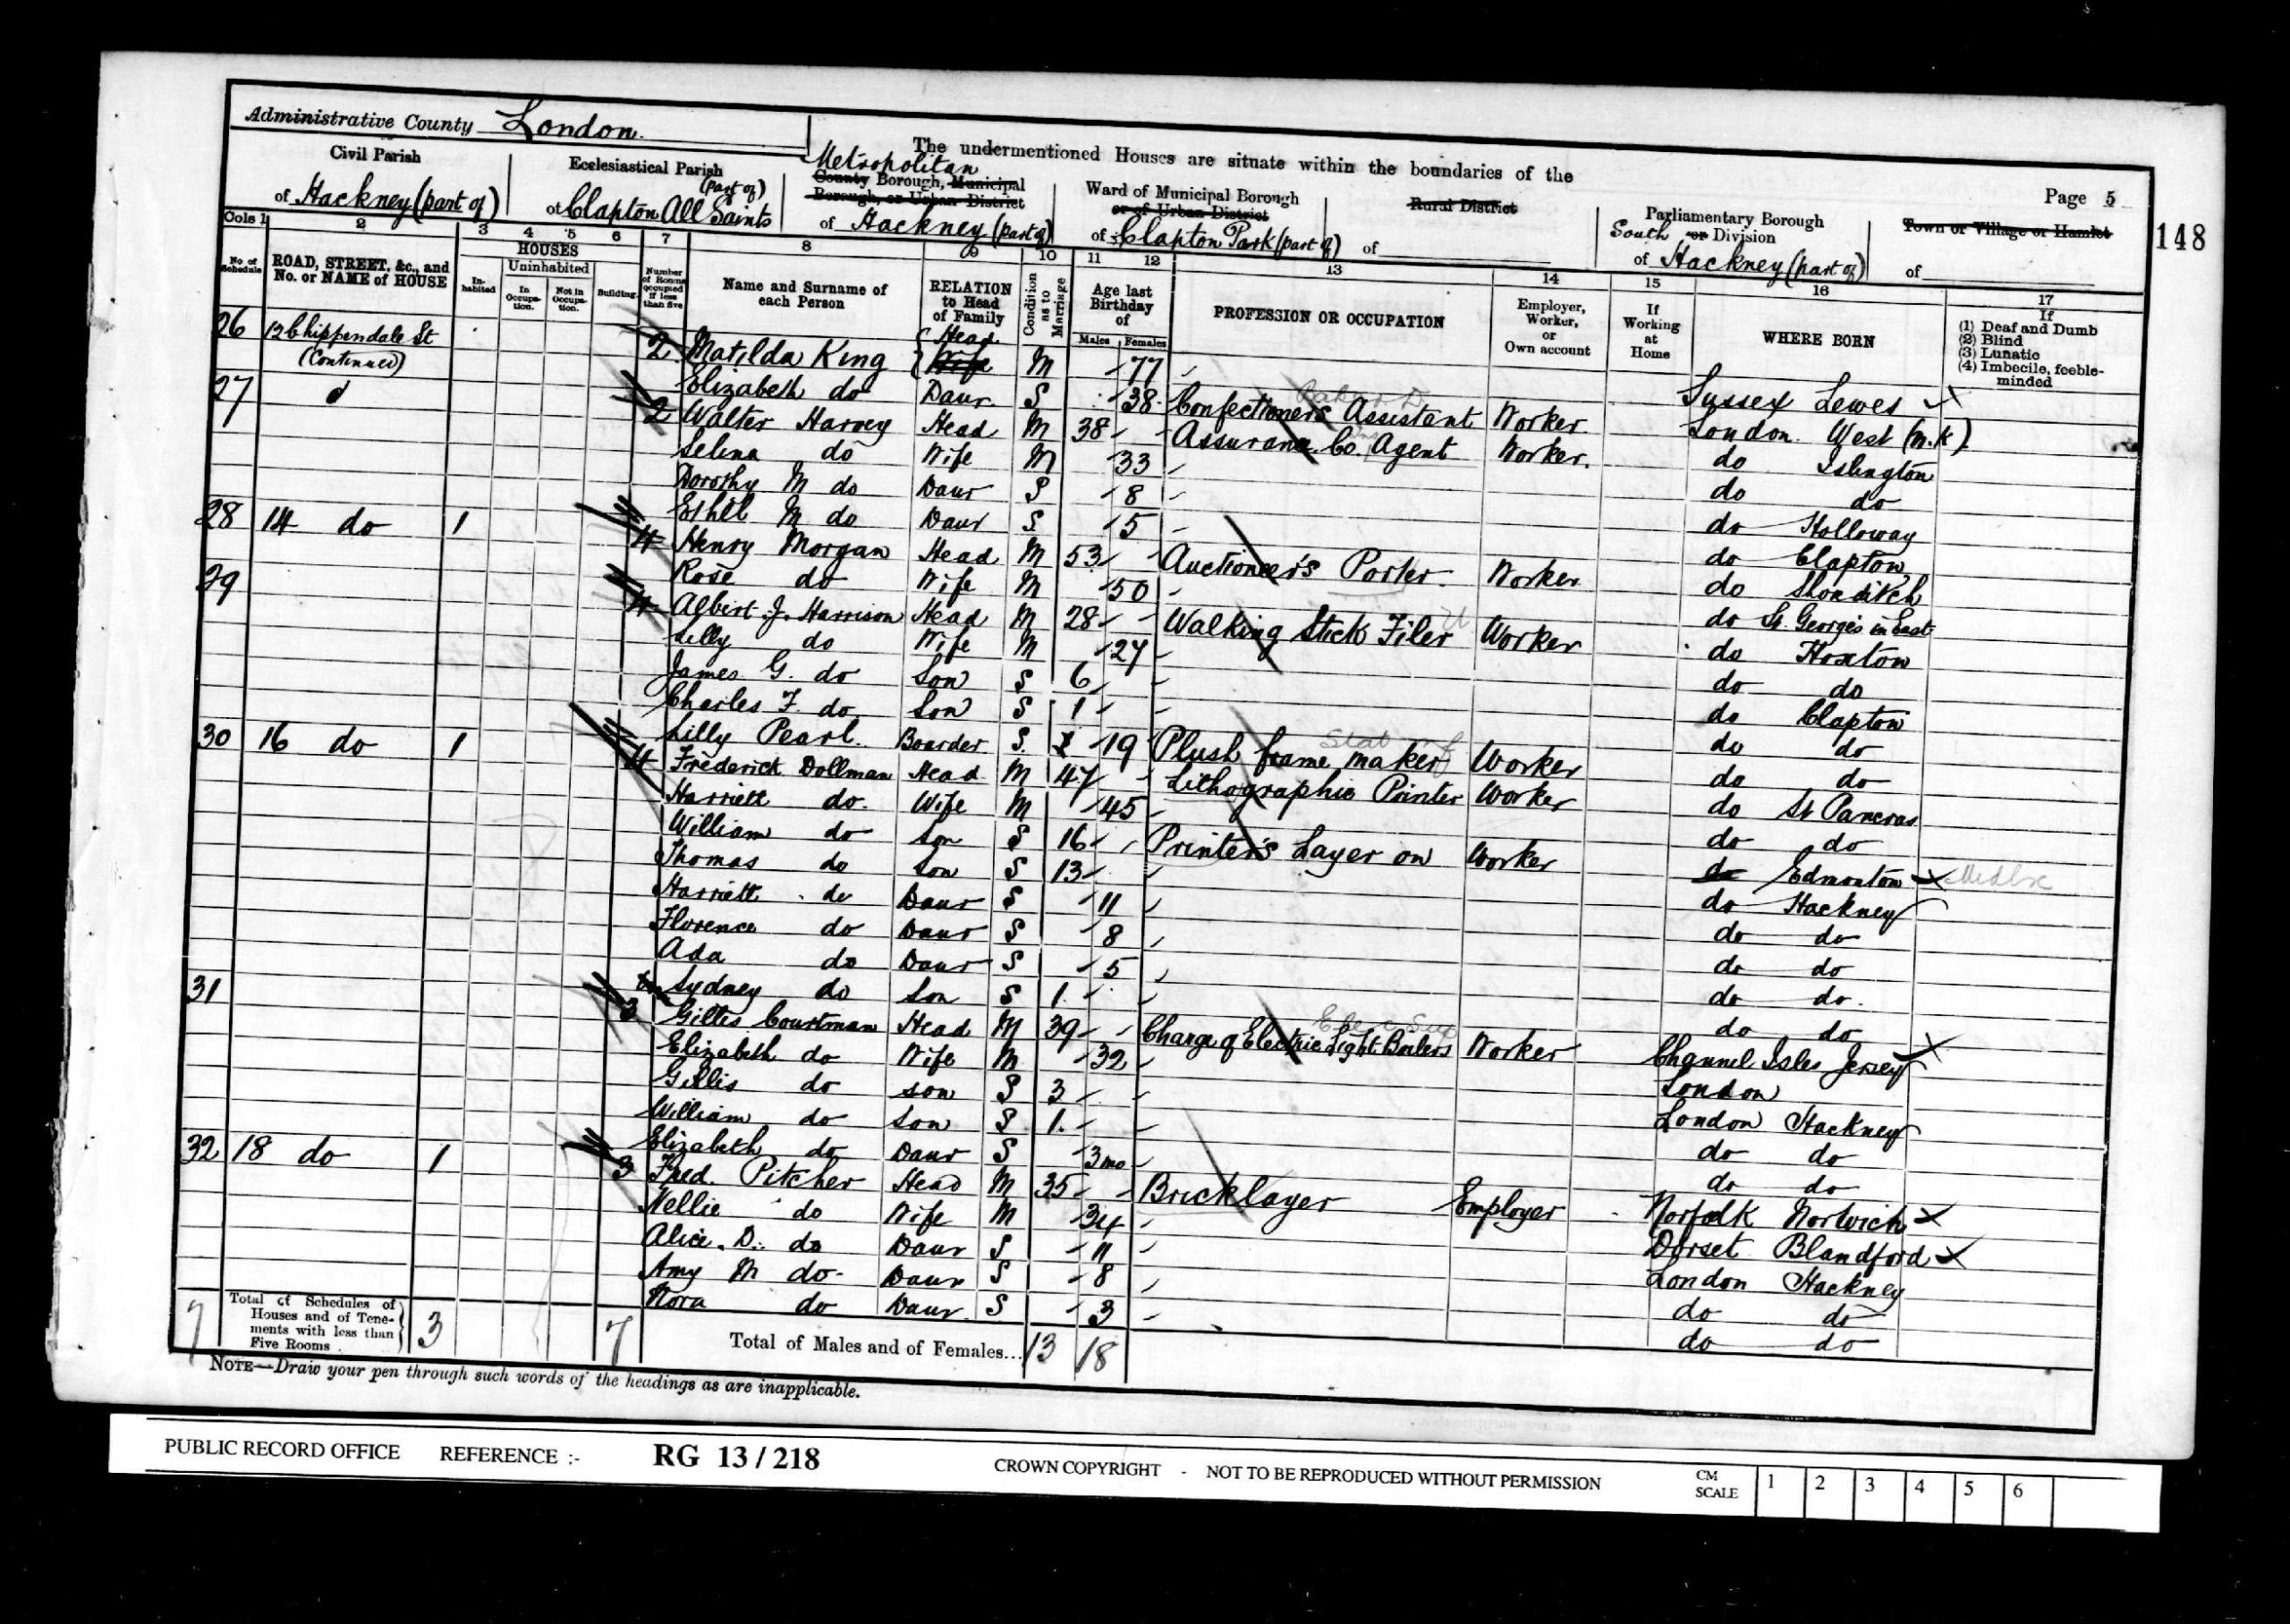 Administrative County London.
The undermentioned Houses are situate within the boundaries of the
Page 5
148
Civil Parish
of Hackney (part of)
Ecclesiastical Parish
(part of)
of Clapton All Saints
Metropolitan
County Borough, Municipal
Borough, or Urban District
of Hackney (part of)
Ward of Municipal Borough
or of Urban District
of Clapton Park (part of)
Rural District
of
Parliamentary Borough
South or Division
of Hackney (part of)
Town or Village or Hamlet
of
Cols 1 2 3 4 5 6 7 8 9 10 11 12 13 14 15 16 17
No. of Schedule
ROAD, STREET, &c., and No. or NAME of HOUSE
HOUSES
In-habited
Uninhabited
In Occupa-tion.
Not in Occupa-tion.
Building.
Number of Rooms occupied if less than five
Name and Surname of each Person
RELATION to Head of Family
Condition as to Marriage
Age last Birthday of
Males Females
PROFESSION OR OCCUPATION
Employer, Worker, or Own account
If Working at Home
WHERE BORN
If
(1) Deaf and Dumb
(2) Blind
(3) Lunatic
(4) Imbecile, feeble-minded
26 12 Chippendale St (Continued) 2 Matilda King Head Wife M 77 Sussex Lewes
Elizabeth do Daur. S 38 Confectioners Assistant Worker London West (n.k)
27 2 Walter Harvey Head M 38 Assurance Co. Agent Worker. do Islington
Selina do Wife M 33 do do
Dorothy M do Daur S 8 do Holloway
Ethel M do Daur S 5 do Clapton
28 14 do 1 4 Henry Morgan Head M 53 Auctioneer's Porter. Worker do Shorditch
Rose do Wife M 50 do St. George's in East
29 4 Albert J. Harrison Head M 28 Walking Stick Filer Worker do Hoxton
Lilly do Wife M 27 do do
James G. do Son S 6 do Clapton
Charles F. do Son S 1 do do
Lilly Pearl. Boarder S. 19 Plush frame maker Worker do do
30 16 do 1 4 Frederick Dollman Head M 47 Lithographic Printer Worker do St Pancras
Harriett do. Wife M 45 do do
William do Son S 16 Printer's Layer on Worker do Edmonton
Thomas do Son S 13 do Hackney
Harriett do Daur S 11 do do
Florence do Daur S 8 do do
Ada do Daur S 5 do do.
Sydney do Son S 1 do do
31 3 Gillis Courtman Head M 39 Charge of Electric Light Boilers Worker Channel Isles Jersey
Elizabeth do Wife M 32 London
Gillis do Son S 3 London Hackney
William do Son S 1 do do
Elizabeth do Daur S 3 mo do do
32 18 do 1 3 Fred. Pitcher Head M 35 Bricklayer Employer Norfolk Norwich
Nellie do Wife M 34 Dorset Blandford
Alice. D. do Daur S 11 London Hackney
Amy M do Daur S 8 do do
Nora do Daur. S 3 do do
7 Total of Schedules of Houses and of Tene-ments with less than Five Rooms 3 7 Total of Males and of Females... 13 18
NOTE—Draw your pen through such words of the headings as are inapplicable.
PUBLIC RECORD OFFICE REFERENCE :- RG 13/218 CROWN COPYRIGHT - NOT TO BE REPRODUCED WITHOUT PERMISSION CM SCALE 1 2 3 4 5 6